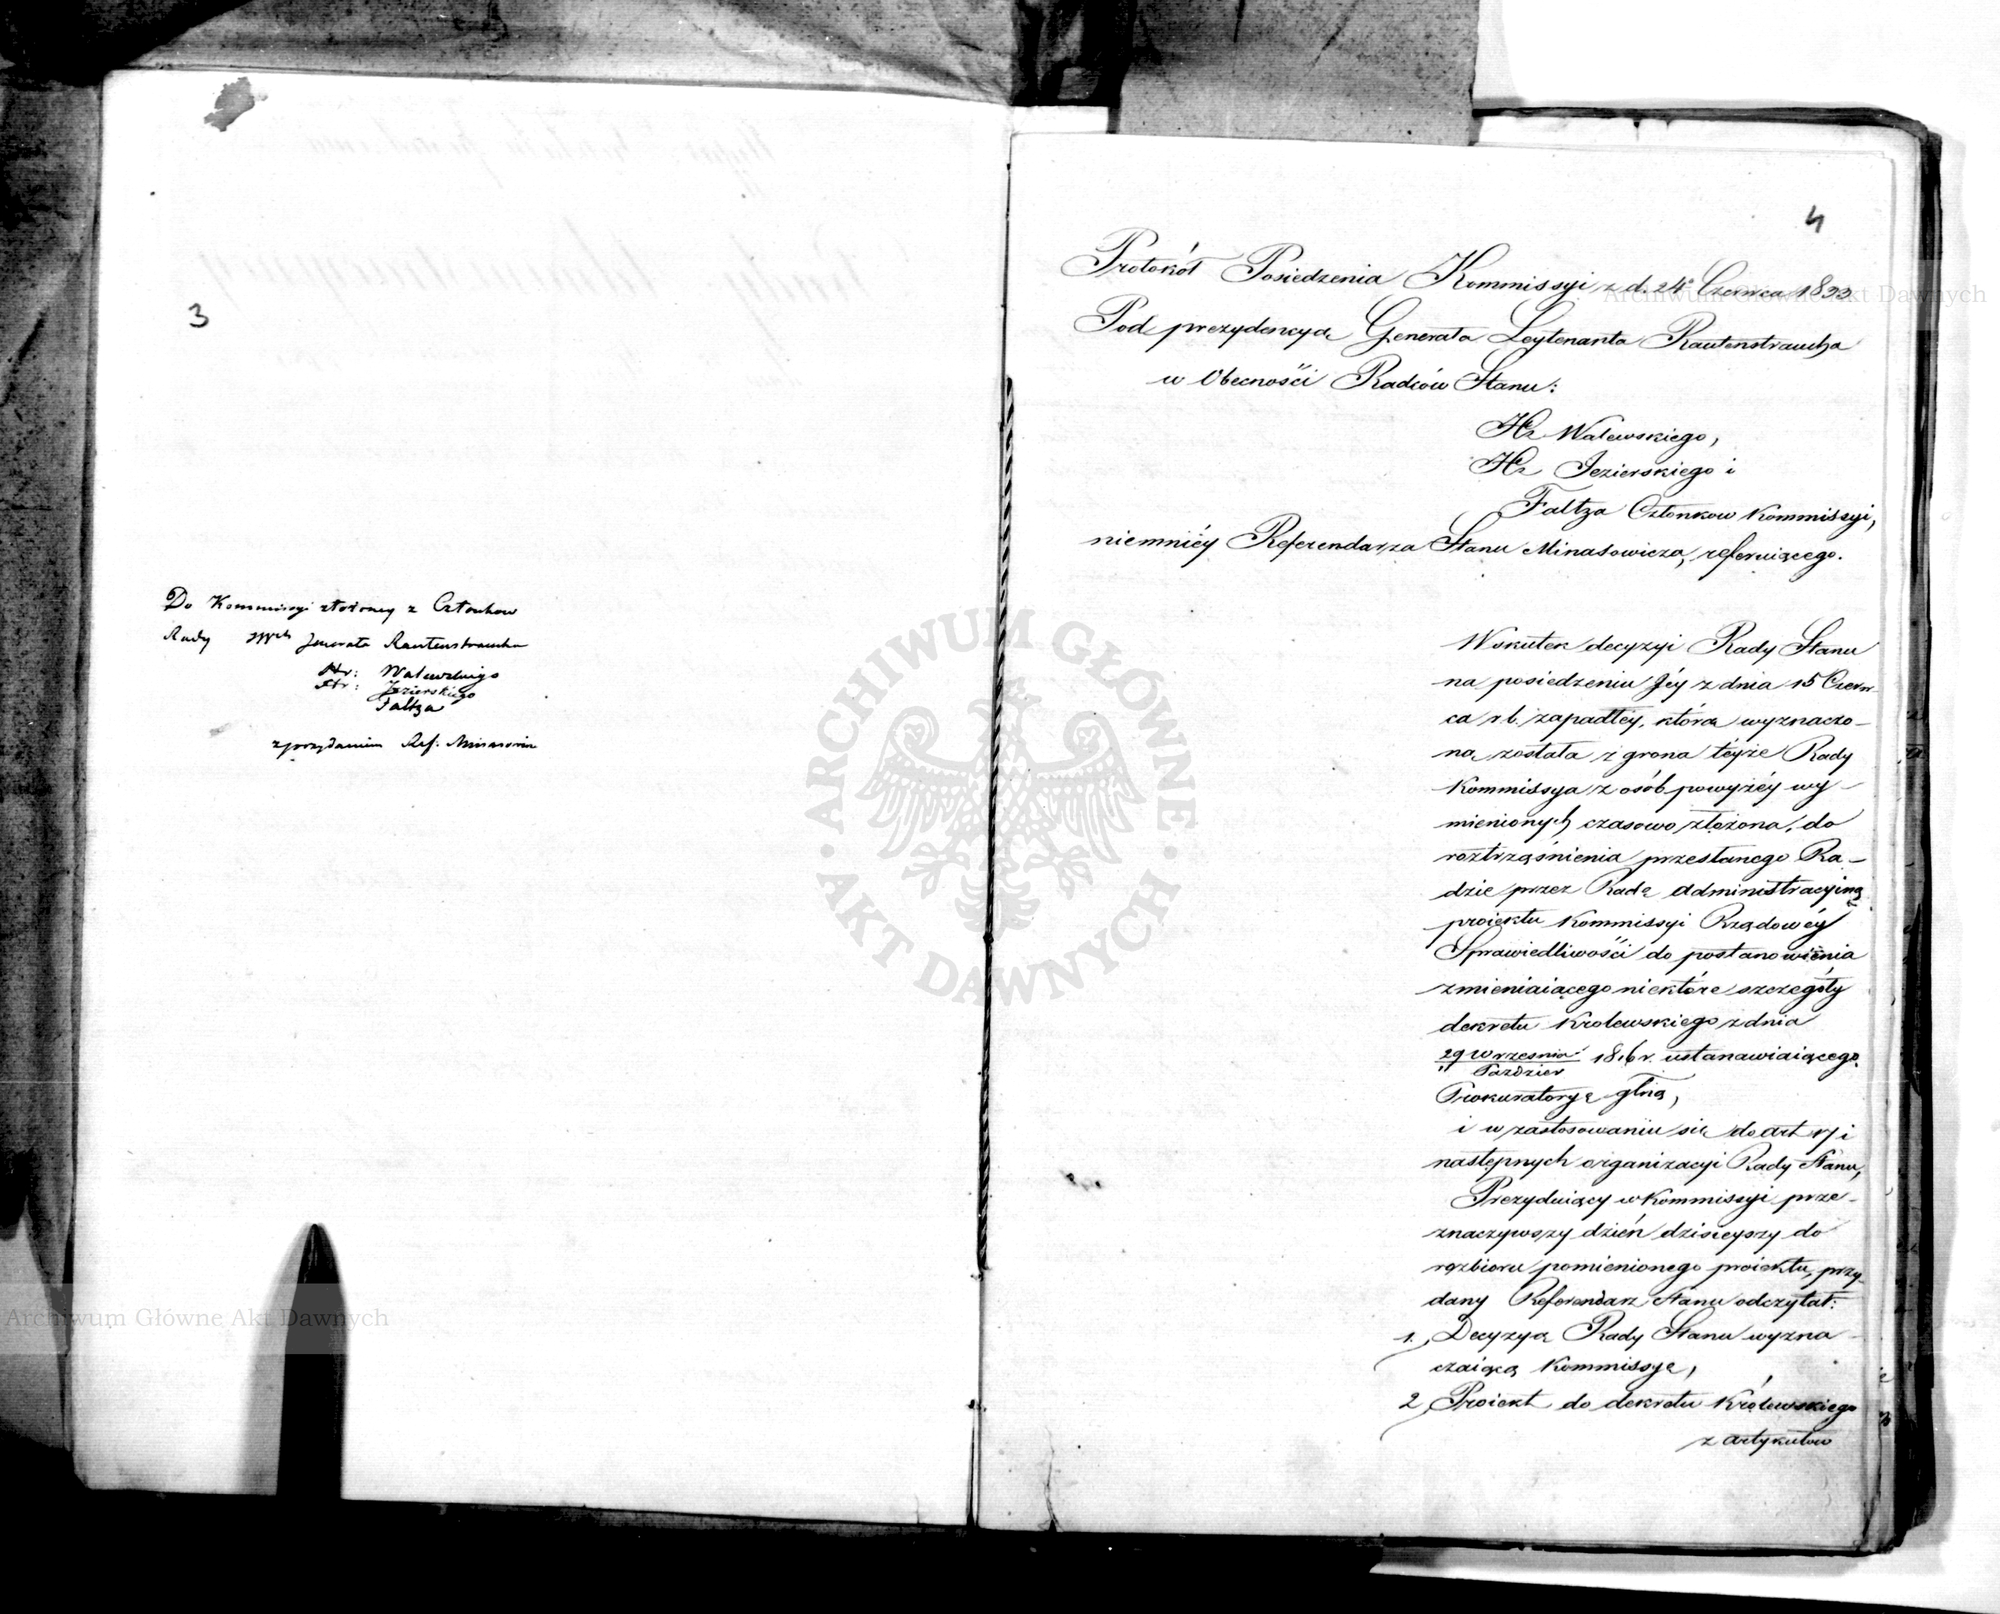 3
Do Kommissyi złożoney z Członkow
Rady JWch Jenerała Rautenstraucha
Hr: Walewskiego
Hr: Jezierskiego
Faltza
z przydaniem Ref. Minasowicza
4
Protokół Posiedzenia Kommissyi z d. 24o Czerwca 1833
Pod prezydencyą Generała Leytenanta Rautenstraucha
w Obecnośći Radców Stanu:
Hr Walewskiego,
Hr Jezierskiego i
Faltza Członkow Kommissyi,
niemniéy Referendarza Stanu Minasowicza, referuiącego.
Wskutek decyzyi Rady Stanu
na posiedzeniu Jéy z dnia 15 Czerw-
ca r.b. zapadłéy, którą wyznaczo-
ną została z grona téyże Rady
Kommissya z osób powyżéy wy-
mienionych czasowo złożona, do
roztrząśnienia przesłanego Ra-
dzie przez Radę Administracyiną
proiektu Kommissyi Rządowéy
Sprawiedliwości do postanowienia
zmieniaiącego niektóre szczegóły
dekretu Królewskiego z dnia
29 Września
11 Paździer 1816 r. ustanawiaiącego
Prokuratoryę głną,
i w zastosowaniu się do art 17 i
następnych organizacyi Rady Stanu,
Prezyduiący w Kommissyi prze-
znaczywszy dzień dzisieyszy do
rozbioru pomienionego proiektu, przy-
dany Referendarz Stanu odczytał:
1, Decyzyą Rady Stanu wyzna-
czaiącą Kommissyę,
2, Proiekt do dekretu Królewskiego
z artykułow
Archiwum Główne Akt Dawnych
Archiwum Główne Akt Dawnych
ARCHIWUM GŁÓWNE · AKT DAWNYCH ·